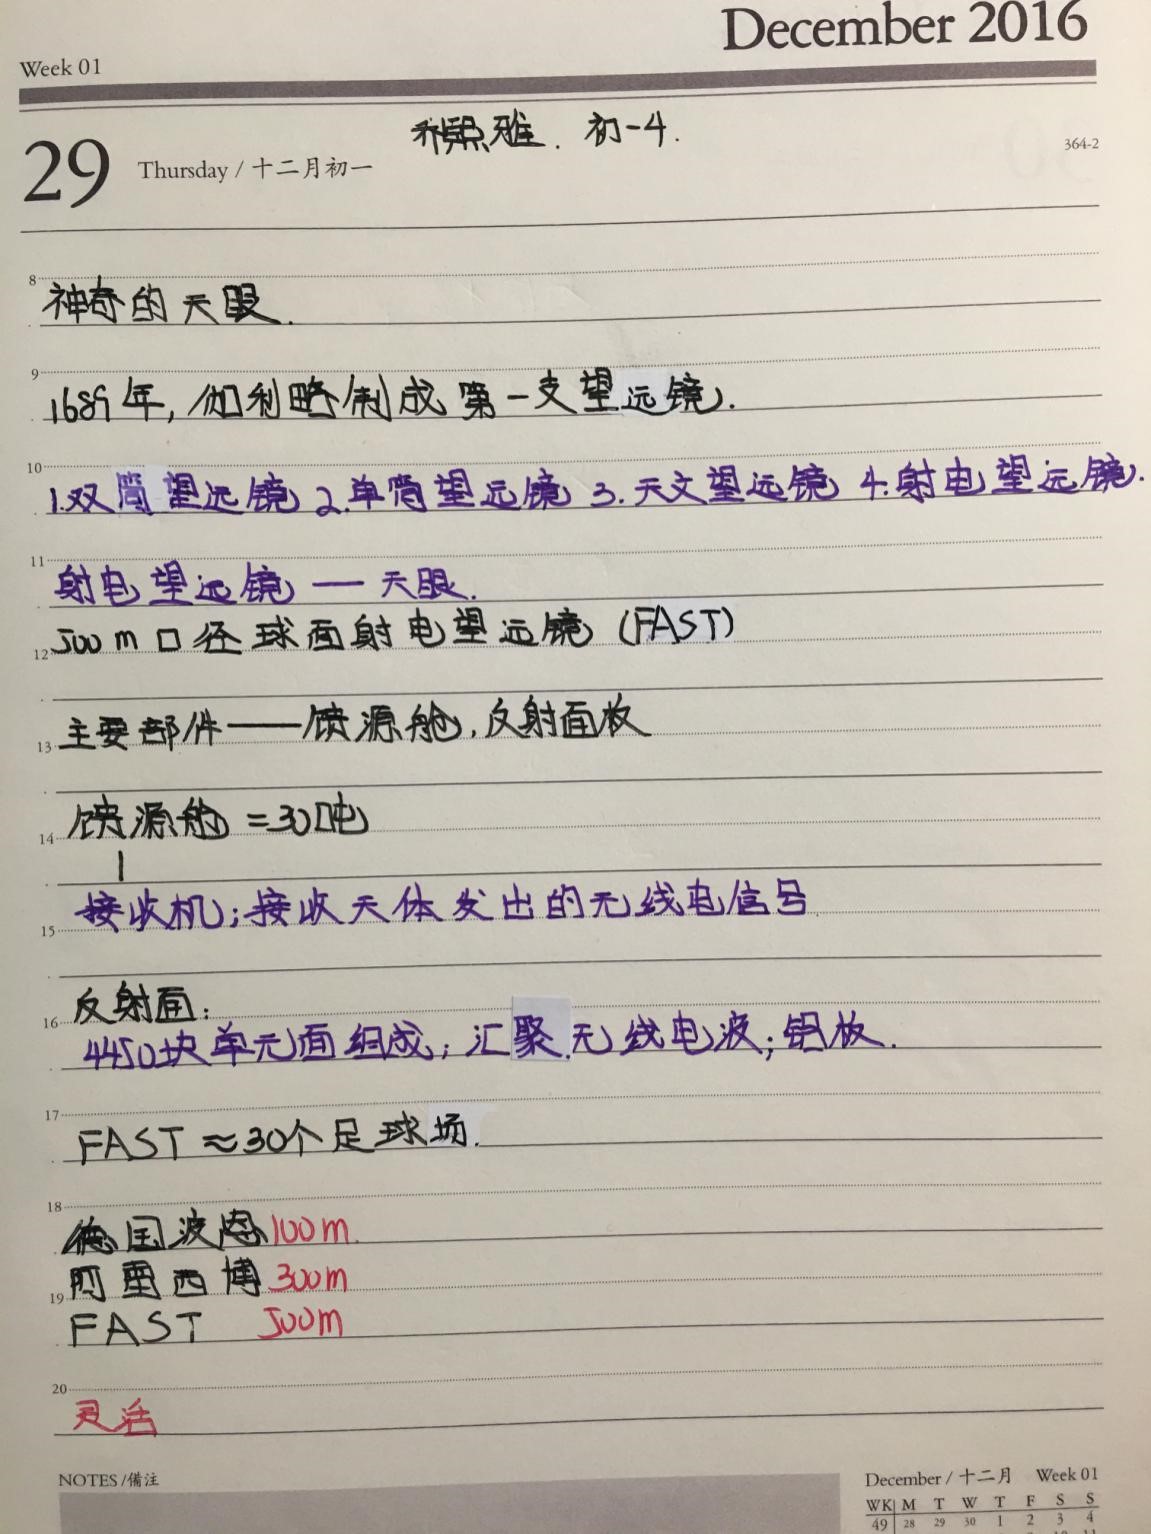 December 2016
Week 01
乔熙雅. 初一4.
29 Thursday / 十二月初一
364-2
8
神奇的天眼.
9
1689年, 伽利略制成第一支望远镜.
10
1.双筒望远镜 2.单筒望远镜 3.天文望远镜 4.射电望远镜.
11
射电望远镜 — 天眼.
500m口径球面射电望远镜 (FAST)
12
主要部件——馈源舱, 反射面板
13
馈源舱 =30吨
14
接收机; 接收天体发出的无线电信号
15
反射面:
16
4450块单元面组成; 汇聚无线电波; 铝板.
17
FAST≈30个足球场.
18
德国波恩100m.
阿雷西博300m
19
FAST 500m
20
灵活
NOTES /備注
December / 十二月 Week 01
WK M T W T F S S
49 28 29 30 1 2 3 4